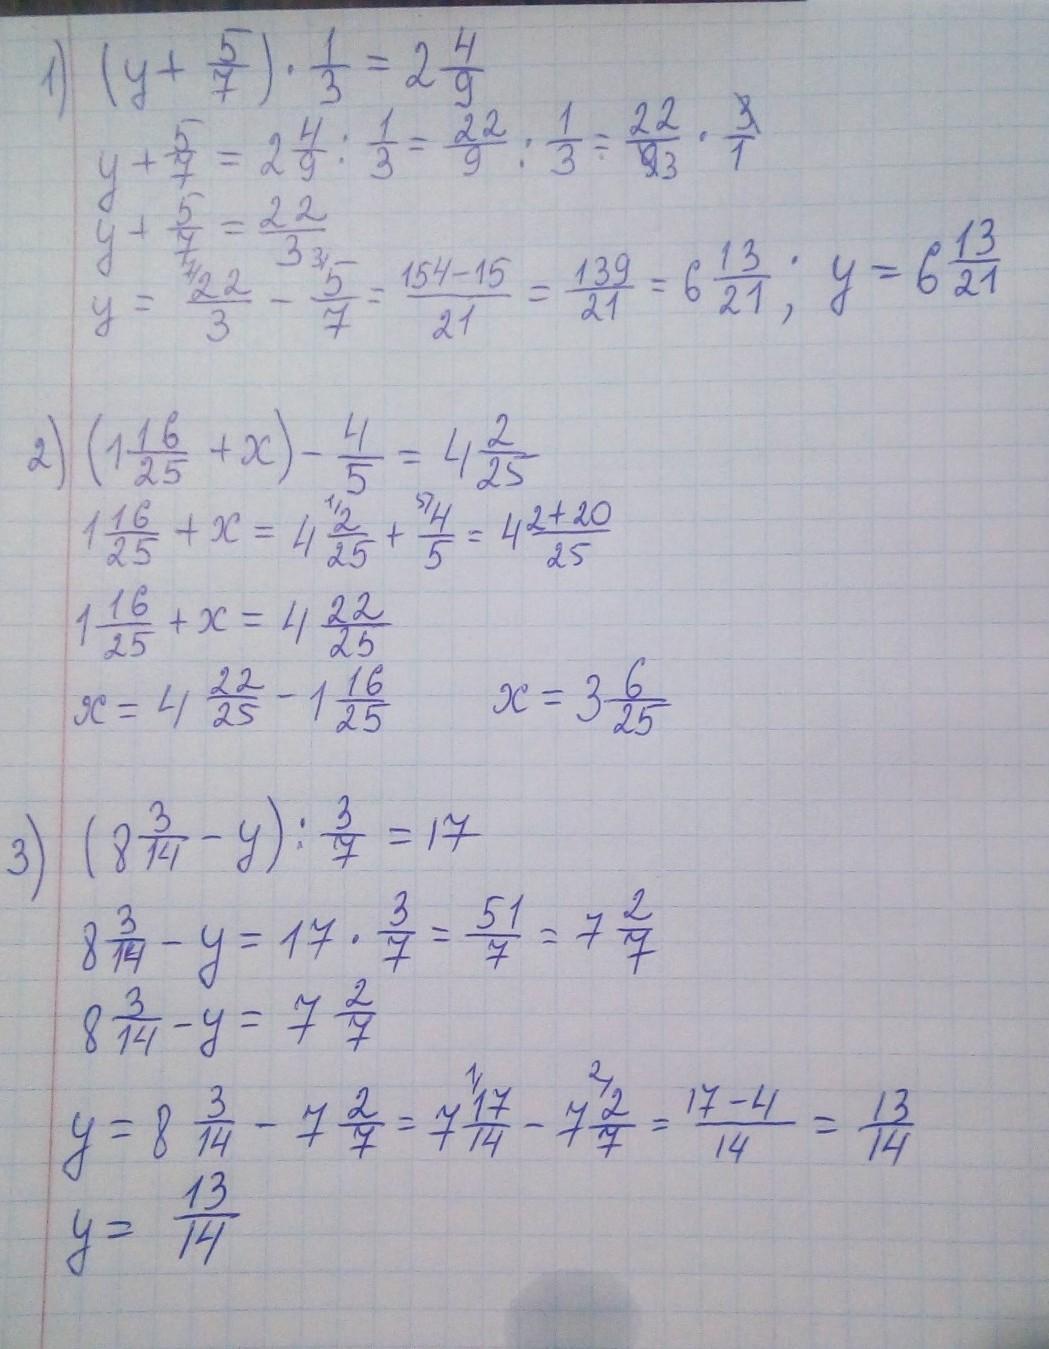 1) (y + 5/7) · 1/3 = 2 4/9
y + 5/7 = 2 4/9 : 1/3 = 22/9 : 1/3 = 22/93 · 3/1
y + 5/7 = 22/3
y = 7/22/3 - 3/5/7 = 154-15/21 = 139/21 = 6 13/21; y = 6 13/21
2) (1 16/25 + x) - 4/5 = 4 2/25
1 16/25 + x = 4 1/2/25 + 5/4/5 = 4 2+20/25
1 16/25 + x = 4 22/25
x = 4 22/25 - 1 16/25 x = 3 6/25
3) (8 3/14 - y) : 3/7 = 17
8 3/14 - y = 17 · 3/7 = 51/7 = 7 2/7
8 3/14 - y = 7 2/7
y = 8 3/14 - 7 2/7 = 7 1/17/14 - 7 2/2/7 = 17-4/14 = 13/14
y = 13/14